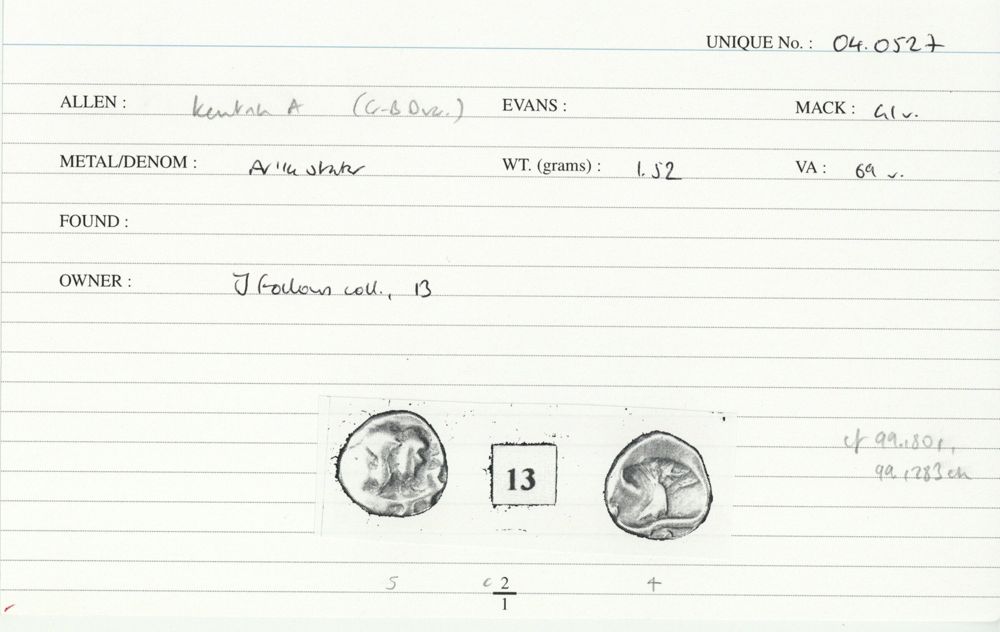 UNIQUE No. : 04.0527
ALLEN : Kentish A (G-B Dva.) EVANS : MACK :
METAL/DENOM : stater WT. (grams) : 1.52 VA : 69 v.
FOUND :
OWNER : J coll., 13
13
cf 99.1801,
99.1283
5 c 2 4
1